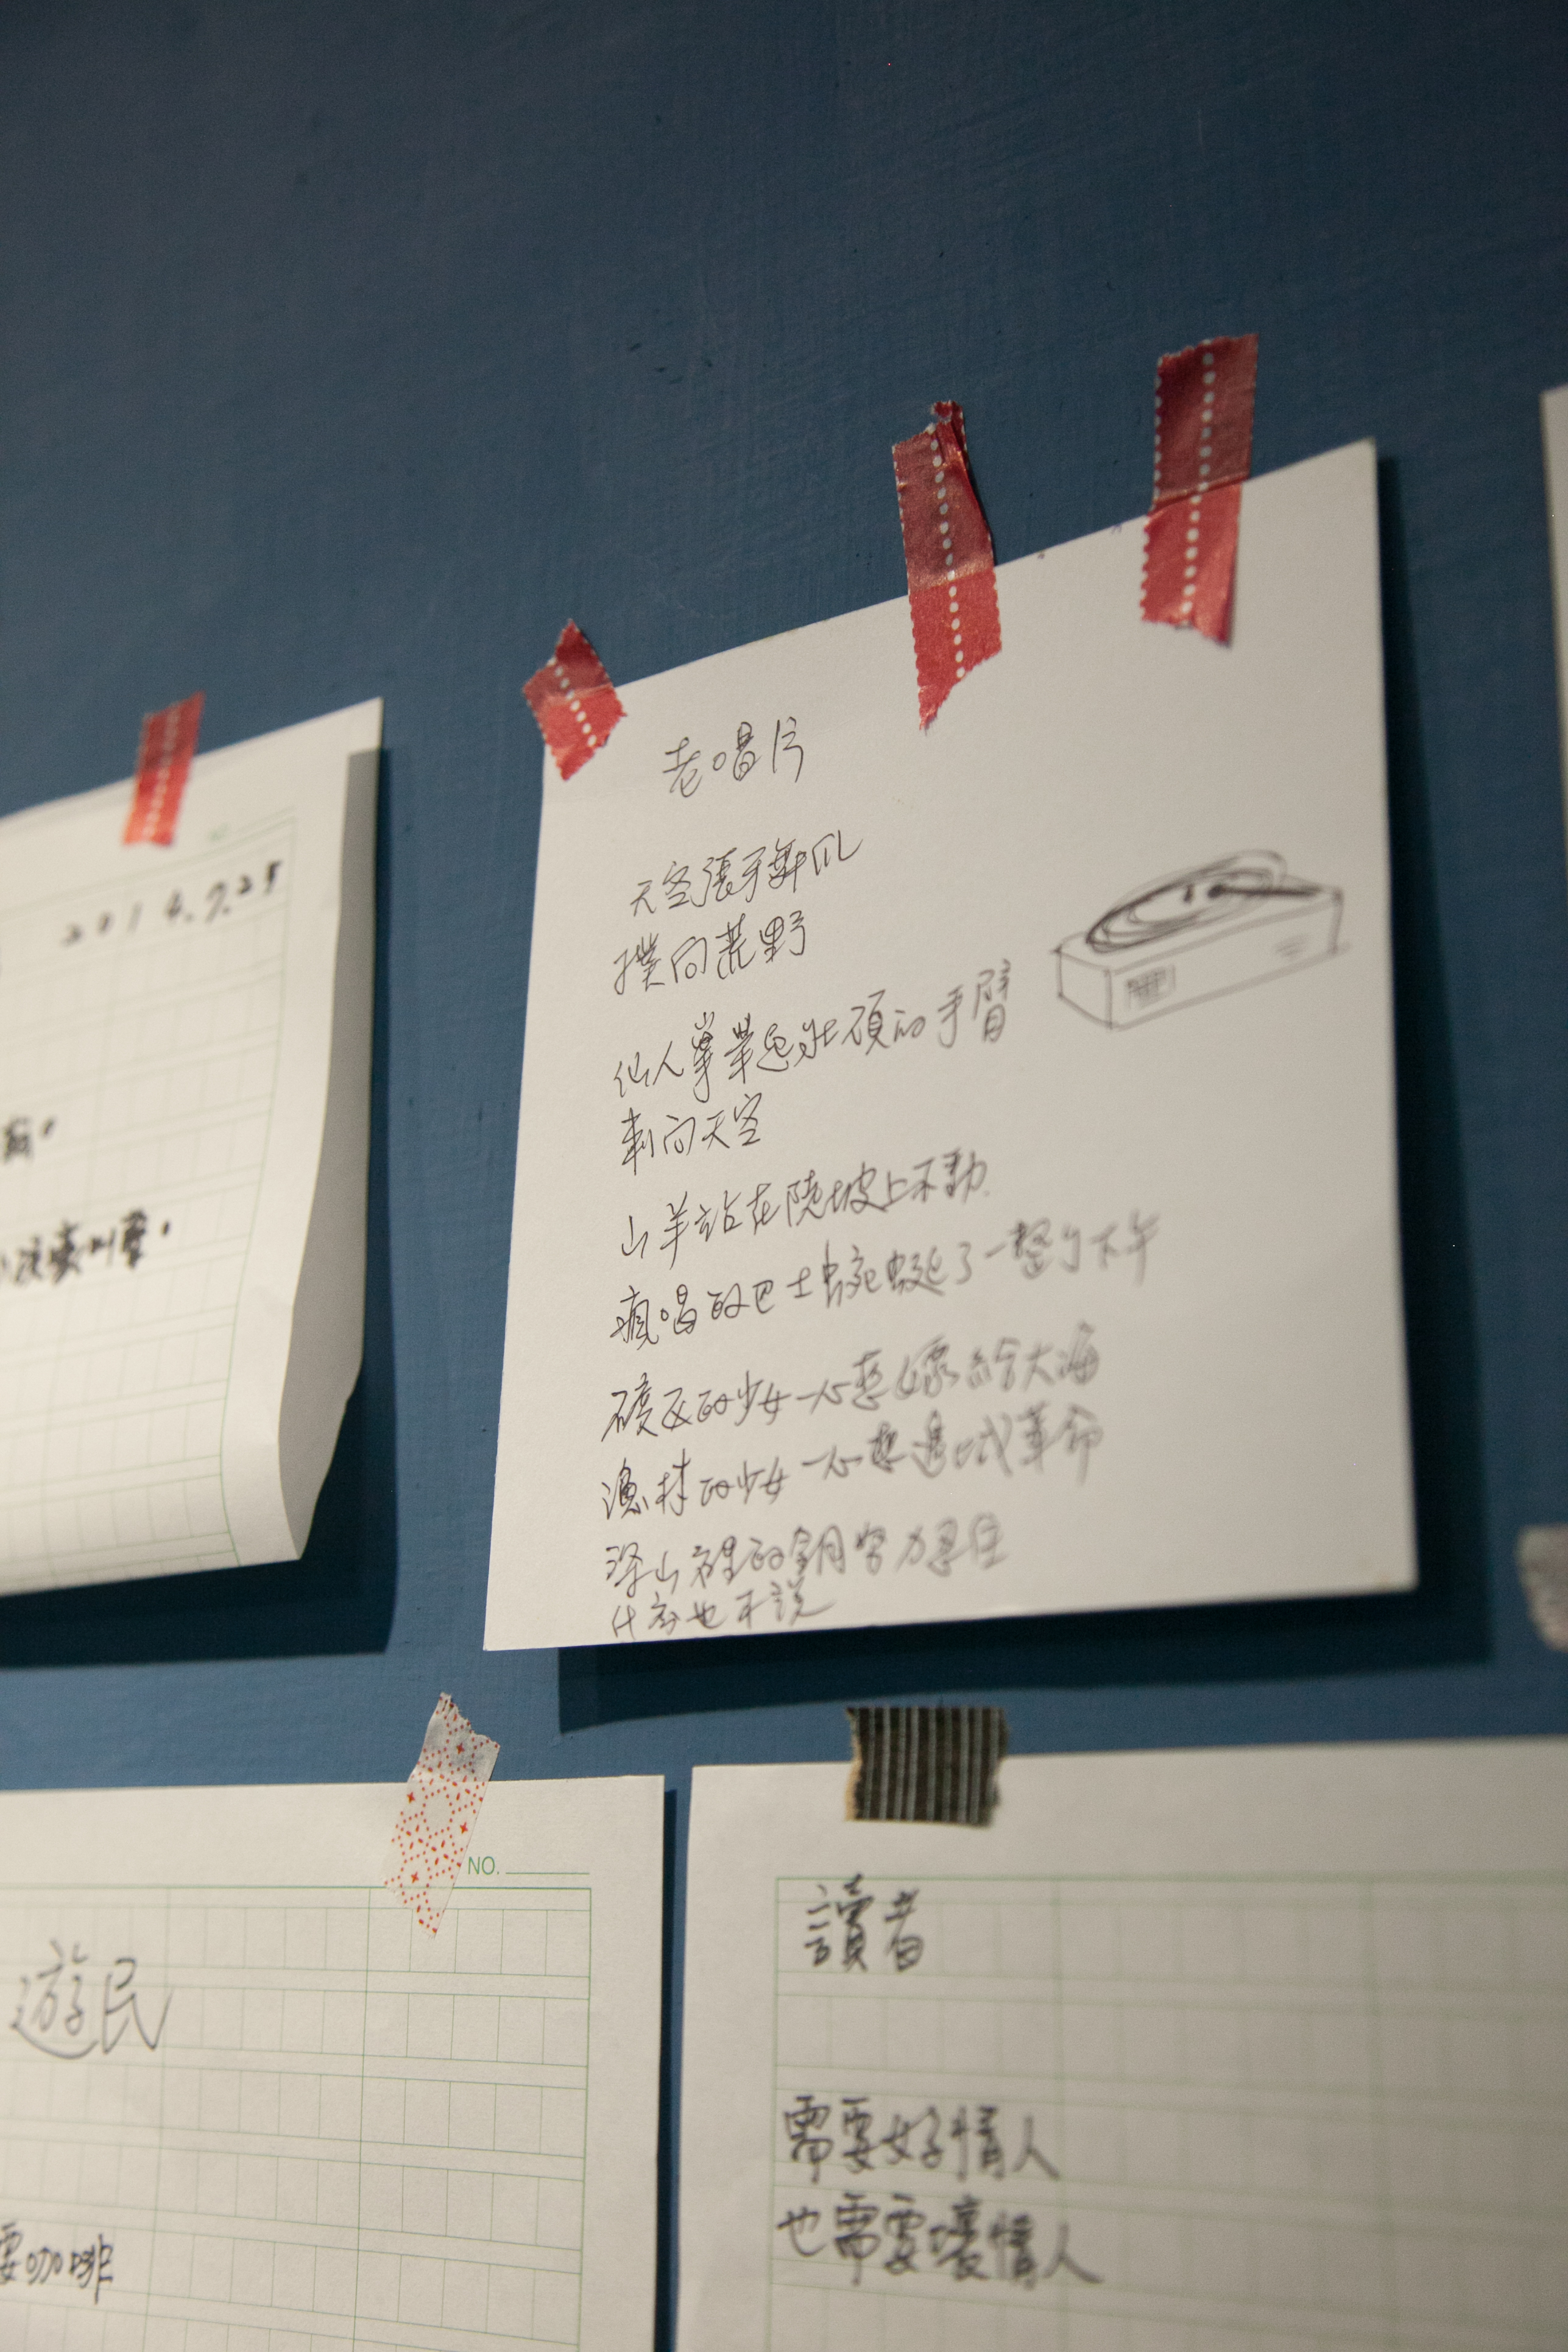 2014.7.25
老唱片
天空張手舞爪
撲向荒野
仙人掌舉起壯碩的手臂
刺向天空
山羊站在陡坡上不動
瘋唱的巴士蜿蜒了一整個下午
礦區的少女一心想嫁給大海
漁村的少女一心想遇上
革命
深山裡的銅努力忍住
什麼也不說
NO.
遊民
要咖啡
讀者
需要好情人
也需要壞情人